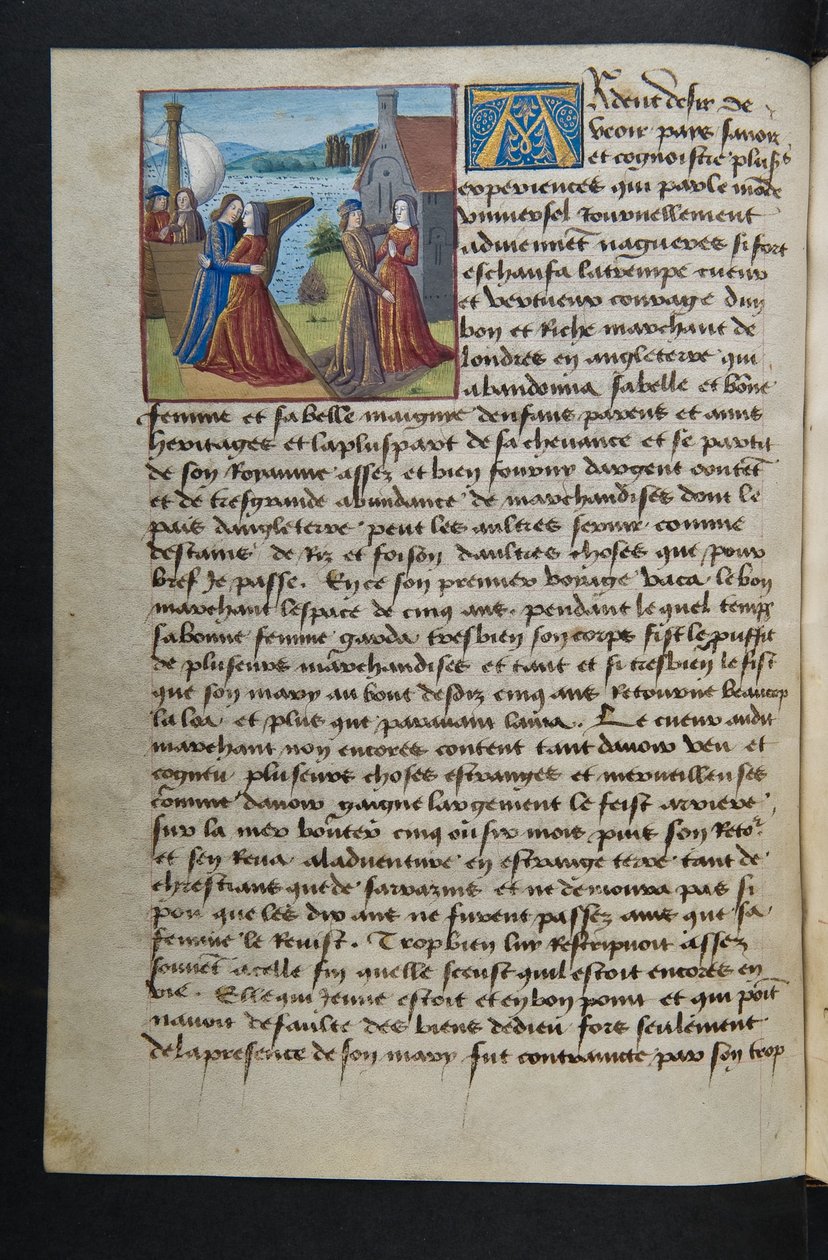 ARdent desir de
veoir pays savoir
et cognoistre pluss
experiences qui par le mōde
vniuersel Journellement
aduiennēt nagueres si fort
eschaufa latrempe cueur
et vertueux courage dun
bon et Riche marchant de
londres en angleterre qui
abandonna sabelle et bōne
femme et sa belle maignie denfans parens et amis
heritages et la pluspart de sa cheuance et se partit
de son Royaume assez et bien fourny dargent contēt
et de tresgrande abundance de marchandises dont le
pais dangleterre peut les aultres seruir comme
destains de Riz et foison daultres choses que pour
bref Je passe. En ce son premier voyage vaca le bon
marchant lespace de cinq ans. pendant le quel temps
sa bonne femme garda tresbien son corps fist le puffit
de pluseurs marchandises et tant et si tresbien le fist
que son mary au bout desdiz cinq ans Retourne beaucop
la loa et plus que parauant lama. Le cueur audit
marchant non encores content tant dauoir veu et
cogneu pluseurs choses estranges et merueilleuses
cōmme dauoir gaigne largement le feist arriere
sur la mer boūter cinq ou six mois puis son Retor
et sen Reua aladuenture en estrange terre tant de
chrestians que de sarrazins et ne demoura pas si
pou que les dix ans ne furent passez ains que sa
femme le Reuist. Trop bien luy Rescripuoit assez
souuēt acelle fin quelle sceust quil estoit encores en
vie. Elle qui Jeune estoit et en bon point et qui poīt
nauoit defaulte des biens dedieu fors seulement
de la presence de son mary fut contraincte par son trop